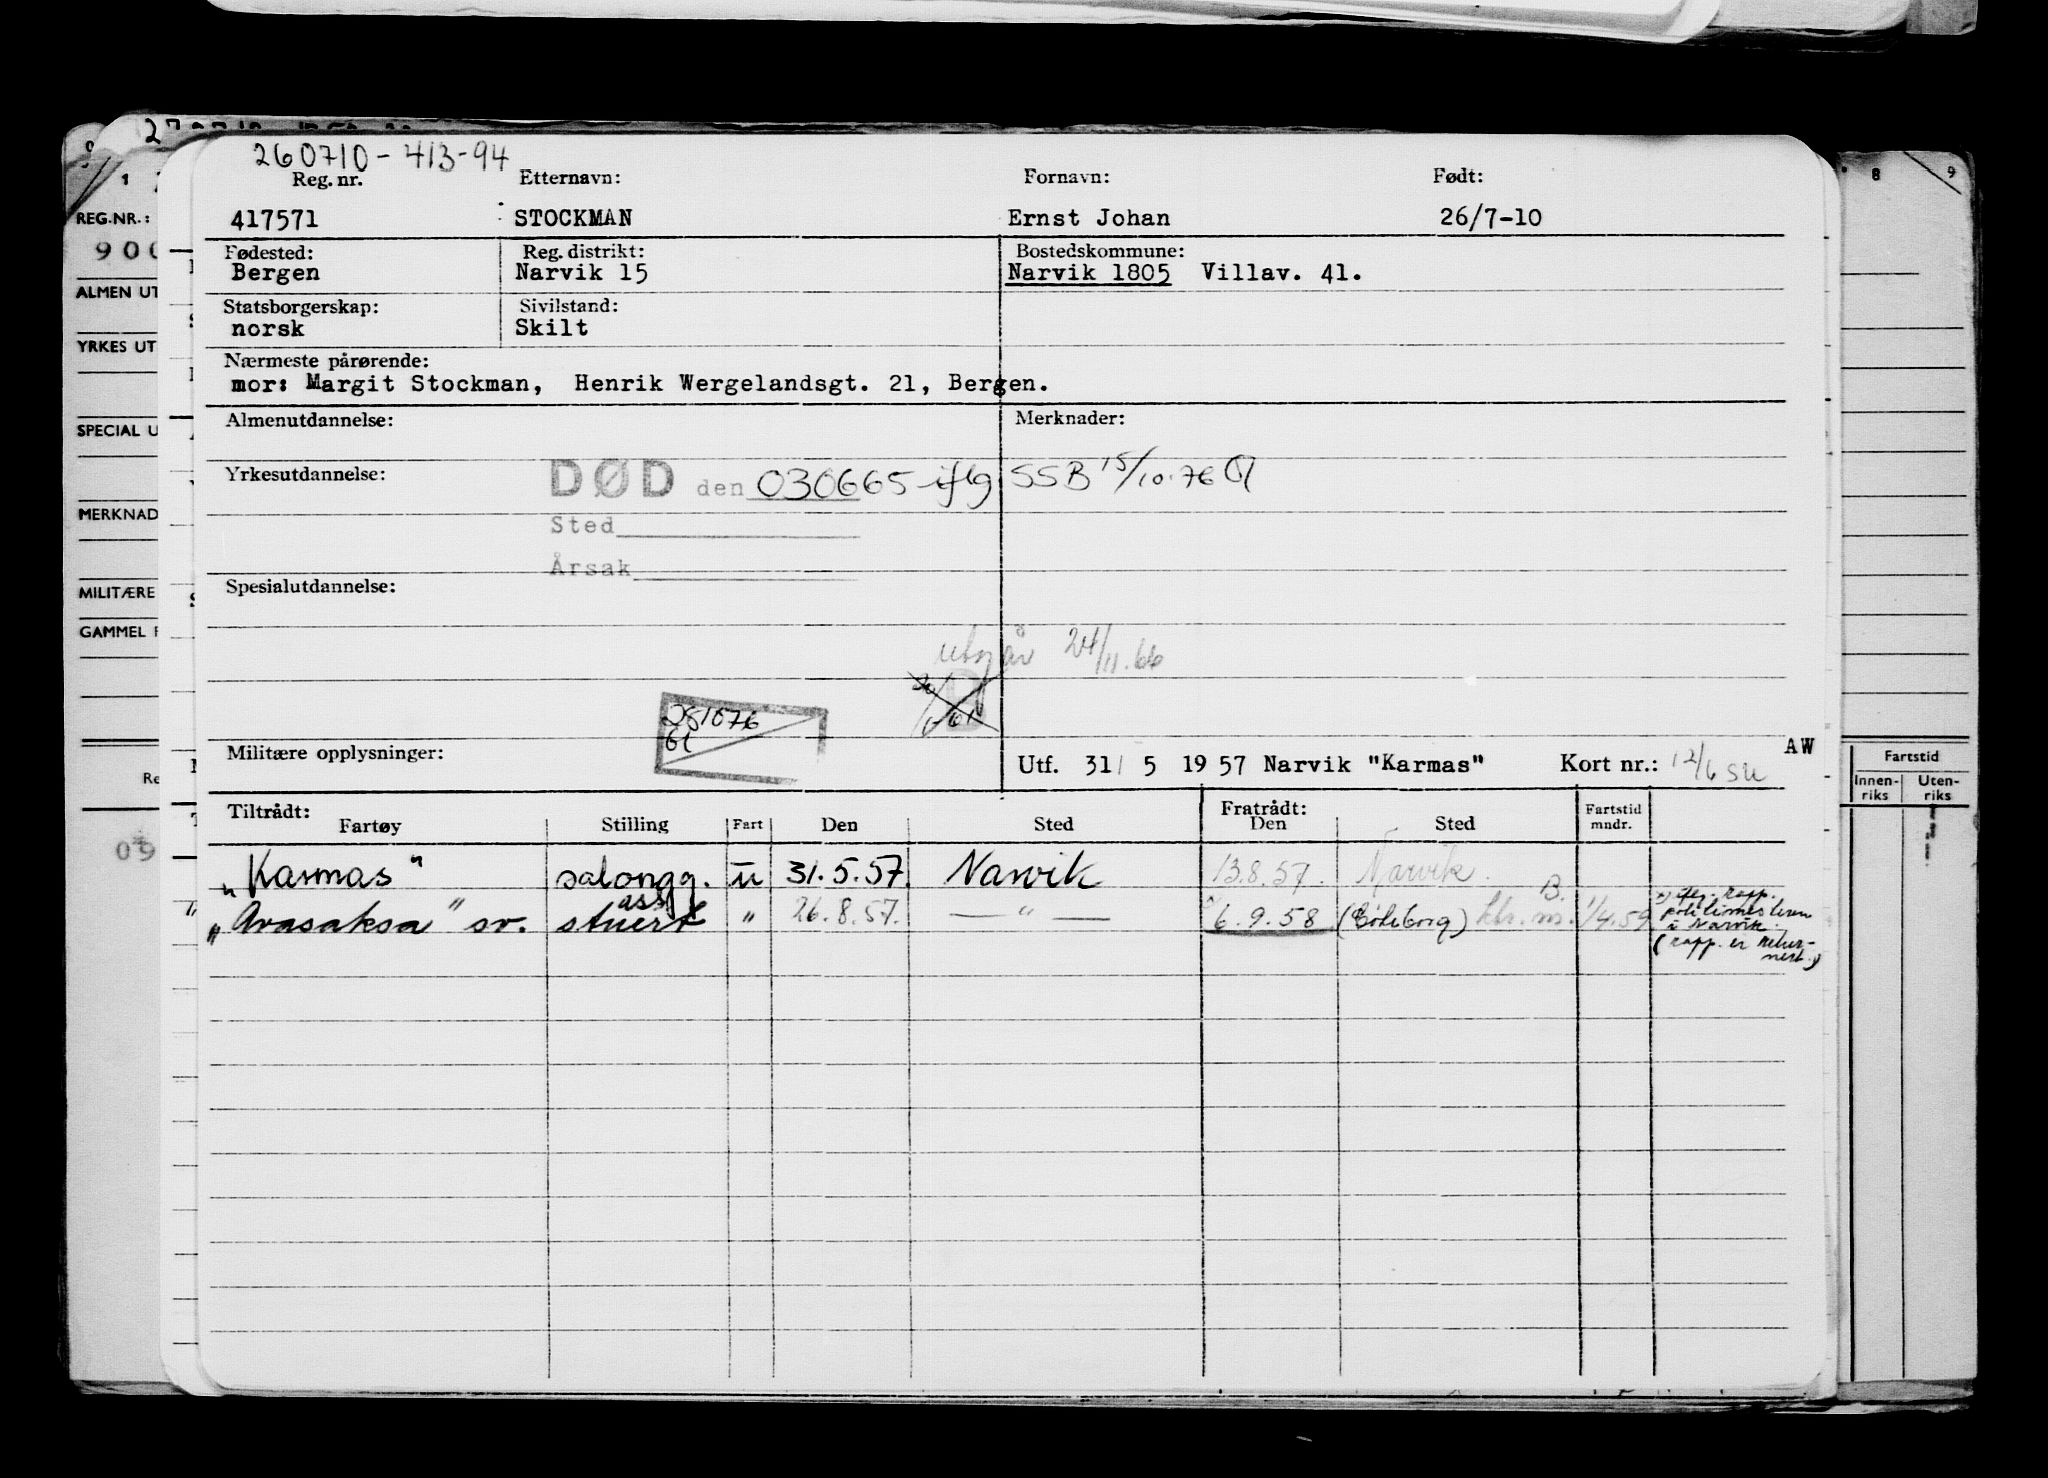 260710-413-94
Reg. nr. Etternavn: Fornavn: Født:
417571 STOCKMAN Ernst Johan 26/7-10
Fødested: Reg. distrikt: Bostedskommune:
Bergen Narvik 15 Narvik 1805 Villav. 41.
Statsborgerskap: Sivilstand:
norsk Skilt
Nærmeste pårørende:
mor: Margit Stockman, Henrik Wergelandsgt. 21, Bergen.
Almenutdannelse: Merknader:
Yrkesutdannelse: DØD den 030665 iflg SSB 15/10.76
Sted
Årsak
Spesialutdannelse:
utgår 24/11.66
281076
Militære opplysninger: Utf. 31/ 5 19 57 Narvik "Karmas" Kort nr.: 12/6 su
AW
Tiltrådt: Fratrådt:
Fartøy Stilling Fart Den Sted Den Sted Fartstid mndr.
"Karmas" salongg. u 31.5.57. Narvik 13.8.57. Narvik.
"Avasaksa" sv. ass stuert " 26.8.57. — " — 6.9.58 (Göteborg) B. 1/4.59
rapp.
politimesteren
i Narvik.
(rapp. er retur-
nert.)
REG.NR.:
900
ALMEN UT
YRKES UT
SPECIAL U
MERKNAD
MILITÆRE
GAMMEL F
Re
09
1
8 9
Fartstid
Innen-
riks
Uten-
riks